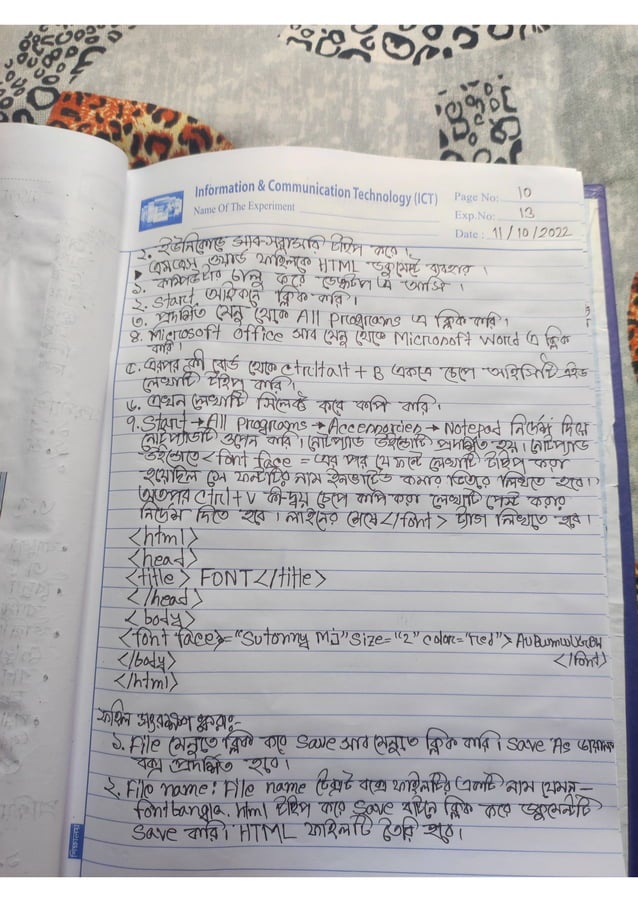 Information & Communication Technology (ICT)
Name Of The Experiment
Page No: 10
Exp.No: 13
Date : 11/10/2022
২. ইউনিকোডে আব-সরাসরি টাইপ করে।
এমএস ওয়ার্ড ফাইলকে HTML ডকুমেন্ট ব্যবহার।
১. কম্পিউটার চালু করে ডেস্কটপ এ আসি।
২. Start আইকনে ক্লিক করি।
৩. প্রদর্শিত মেনু থেকে All Programs এ ক্লিক করি।
৪. Microsoft office সাব মেনু থেকে Microsoft Word এ ক্লিক
করি।
৫. এরপর কী বোর্ড থেকে ctrl+alt + B একত্রে চেপে আইসিটি এইড
লেখাটি টাইপ করি।
৬. এখন লেখাটি সিলেক্ট করে কপি করি।
৭. Start → All programs → Accessories → Notepad নির্দেশ দিয়ে
নোটপ্যাডটি ওপেন করি। নোটপ্যাড উইন্ডোটি প্রদর্শিত হয়। নোটপ্যাড
উইন্ডোতে <font face = এর পর যে ফন্টে লেখাটি টাইপ করা
হয়েছিল সে ফন্টটির নাম ইনভার্টেড কমার ভিতরে লিখতে হবে।
অতপর ctrl+V কী-দ্বয় চেপে কপি করা লেখাটি পেস্ট করার
নির্দেশ দিতে হবে। লাইনের শেষে </font> ট্যাগ লিখতে হবে।
<html>
<head>
<title> FONT</title>
</head>
<body>
<font face>="Sutonny Mj" size="2" color="red">
</font>
</body>
</html>
ফাইল সংরক্ষণ করা:-
১. File মেনুতে ক্লিক করে save সাব মেনুতে ক্লিক করি। save As ডায়ালগ
বক্স প্রদর্শিত হবে।
২. File name: File name টেক্সট বক্সে ফাইলটির একটি নাম যেমন –
fontbangla. html টাইপ করে save বাটনে ক্লিক করে ডকুমেন্টটি
save করি। HTML ফাইলটি তৈরি হবে।